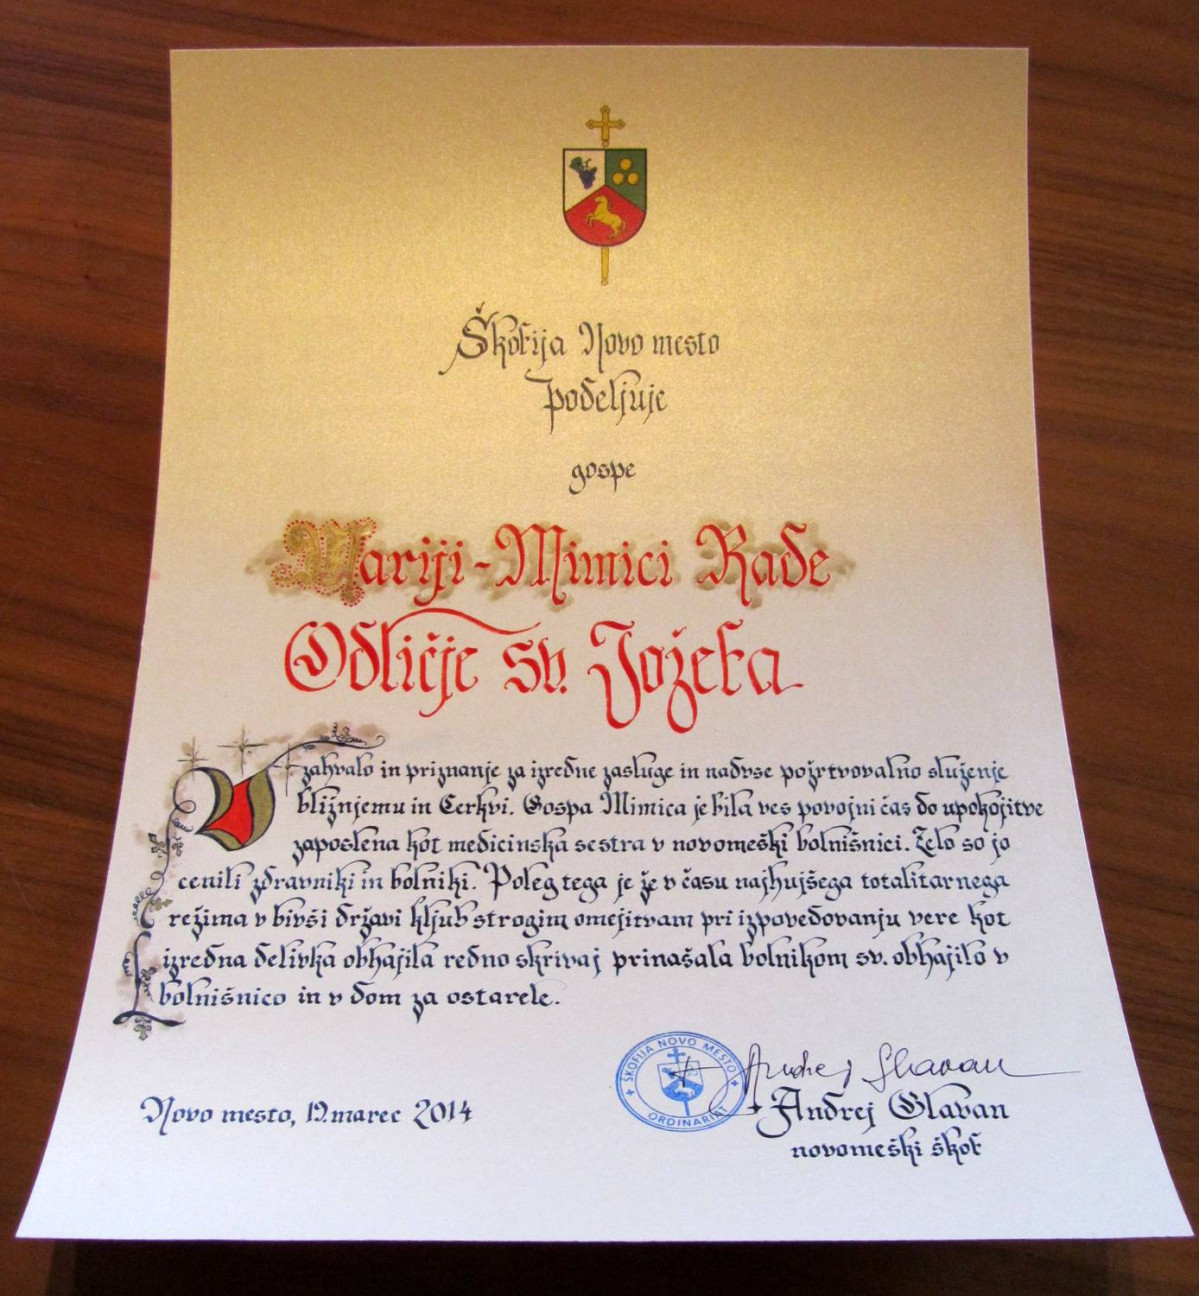 Škofija Novo mesto
podeljuje
gospe
Mariji-Mimici Rade
Odličje sv. Jožefa
V zahvalo in priznanje za izredne zasluge in nadvse požrtvovalno služenje
bližnjemu in Cerkvi. Gospa Mimica je bila ves povojni čas do upokojitve
zaposlena kot medicinska sestra v novomeški bolnišnici. Zelo so jo
cenili zdravniki in bolniki. Poleg tega je že v času najhujšega totalitarnega
režima v bivši državi kljub strogim omejitvam pri izpovedovanju vere kot
izredna delivka obhajila redno skrivaj prinašala bolnikom sv. obhajilo v
bolnišnico in v dom za ostarele.
ŠKOFIJA NOVO MESTO
ORDINARIAT
+ Andrej Glavan
Novo mesto, 19. marec 2014
+ Andrej Glavan
novomeški škof